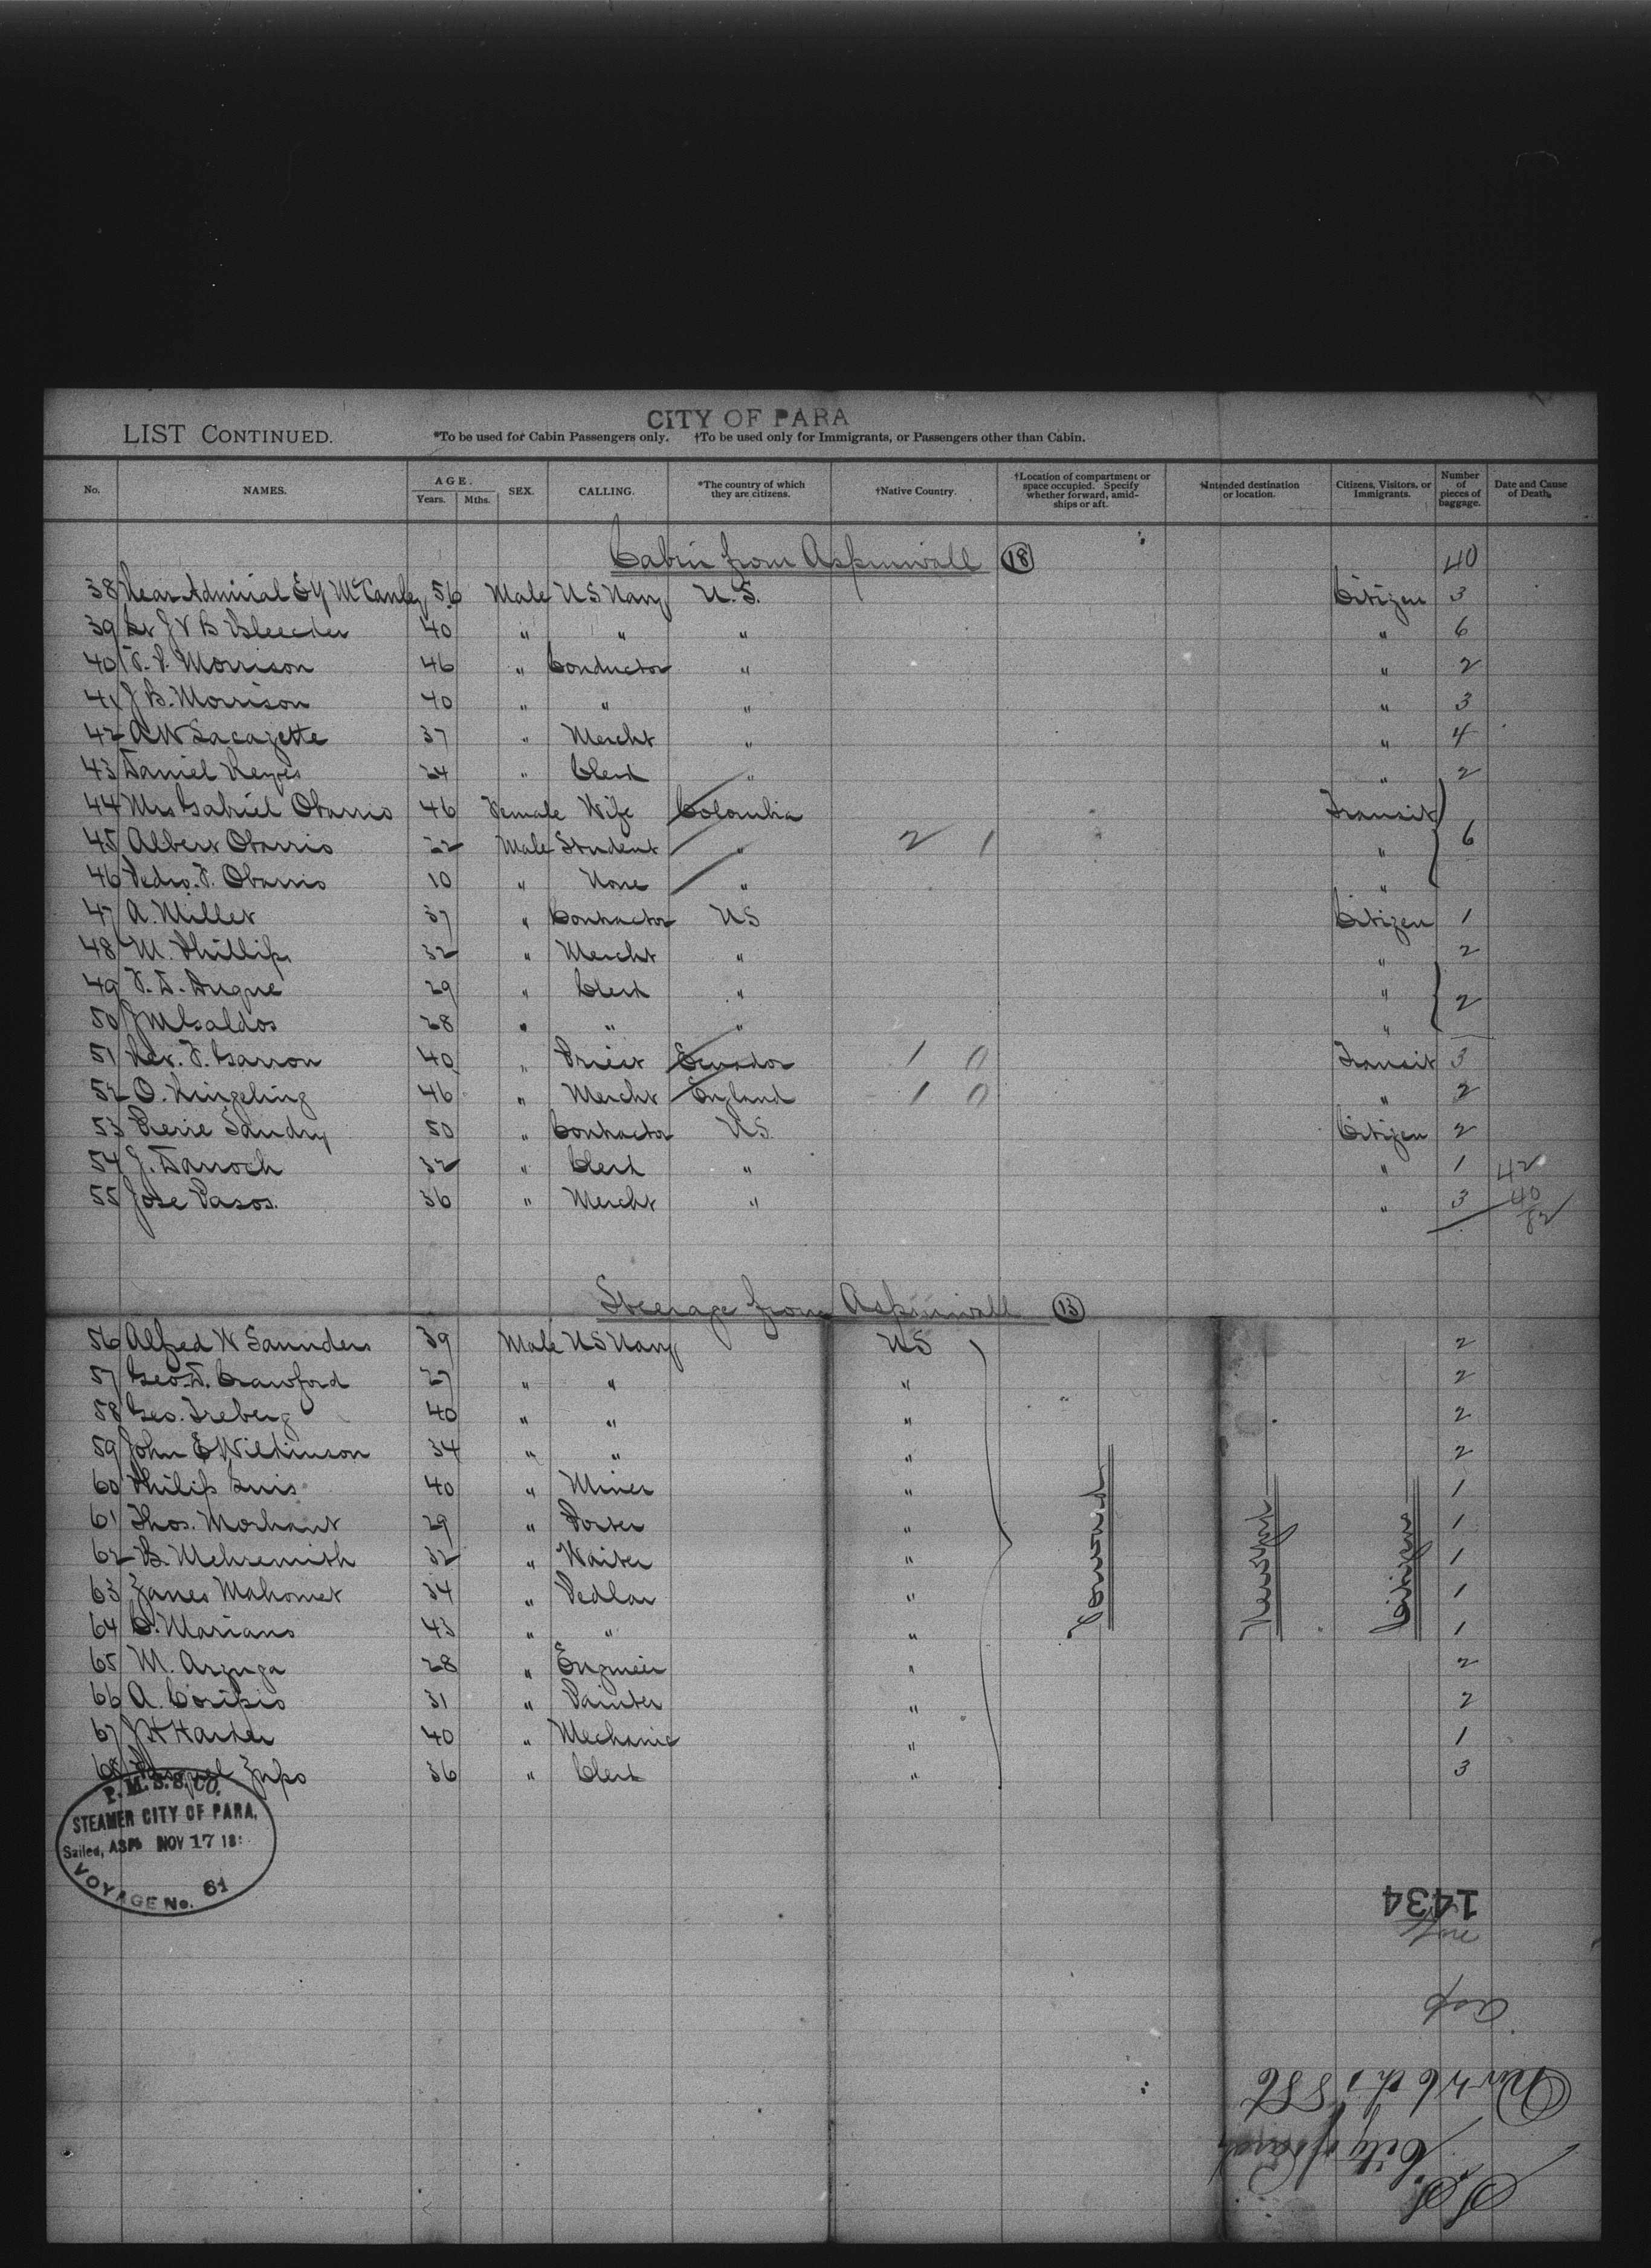 CITY OF PARA
LIST CONTINUED. *To be used for Cabin Passengers only. †To be used only for Immigrants, or Passengers other than Cabin.
No. NAMES. AGE. Years. Mths. SEX. CALLING. *The country of which they are citizens. †Native Country. †Location of compartment or space occupied. Specify whether forward, amid-ships or aft. †Intended destination or location. Citizens, Visitors, or Immigrants. Number of pieces of baggage. Date and Cause of Death.
Cabin from Aspinwall 18 40
38 Rear Admiral E Y McCauley 56 Male US Navy U.S. Citizen 3
39 Lt J V B Bleecker 40 " " " " 6
40 F. P. Morrison 46 " Conductor " " 2
41 J B. Morrison 40 " " " " 3
42 A W Lacazette 37 " Mercht " " 4
43 Daniel Keyes 24 " Clerk " " 2
44 Mrs Gabriel Obarrio 46 Female Wife Colombia Transit
45 Albert Obarrio 22 Male Student " 2 1 " 6
46 Pedro. F. Obarrio 10 " None " "
47 A. Miller 37 " Contractor US Citizen 1
48 M. Phillips 32 " Mercht " " 2
49 F. D. Duque 29 " Clerk " "
50 J M Galdos 28 " " " " 2
51 Rev. F. Garron 40 " Priest Ecuador 1 0 Transit 3
52 O. Kingeling 46 " Mercht England 1 0 " 2
53 Pierre Sandry 50 " Contractor US. Citizen 2
54 J. Darroch 32 " Clerk " " 1 42
55 Jose Pasos. 36 " Mercht " " 3 40
82
Steerage from Aspinwall 13
56 Alfred W Saunders 39 Male US Navy US 2
57 Geo. D. Crawford 27 " " " 2
58 Geo. Treberg 40 " " " 2
59 John E Wilkinson 34 " " " 2
60 Philip Luis 40 " Miner " 1
61 Thos. Morhant 29 " Porter " 1
62 B. Mehremith 32 " Waiter " 1
63 Zanes Mahomet 34 " Pedlar " 1
64 D. Mariano 43 " " " 1
65 M. Arzuga 28 " Engineer " 2
66 A. Coripio 31 " Painter " 2
67 J H Harder 40 " Mechanic " 1
68 Zupo 36 " Clerk " 3
Forward
New York
Citizens
P. M. S. S. CO.
STEAMER CITY OF PARA,
Sailed, ASP. NOV 17 18
VOYAGE No. 61
1434
Asp
Nov 26th 1886
City of Para
S.S.